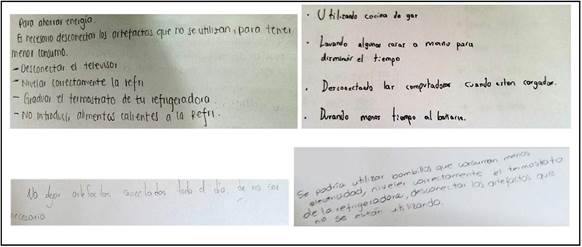 Para ahorrar energía.
Es necesario desconectar los artefactos que no se utilizan, para tener
menor consumo.
- Desconectar el televisor
- Nivelar correctamente la refri
- Graduar el termostrato de tu refrigeradora.
- No introducir alimentos calientes a la Refri.
· Utilizando cocina de gas
· Lavando algunas cosas a mano para
disminuir el tiempo
· Desconectando las computadoras cuando esten cargadas.
· Durando menos tiempo al bañarse.
No dejar artefactos conectados todo el dia, de no ser
necesario
Se podría utilizar bombillos que consuman menos
electricidad, nivelar correctamente el termostrato
de la refrigeradora, desconectar los artefactos que
no se estan utilizando.